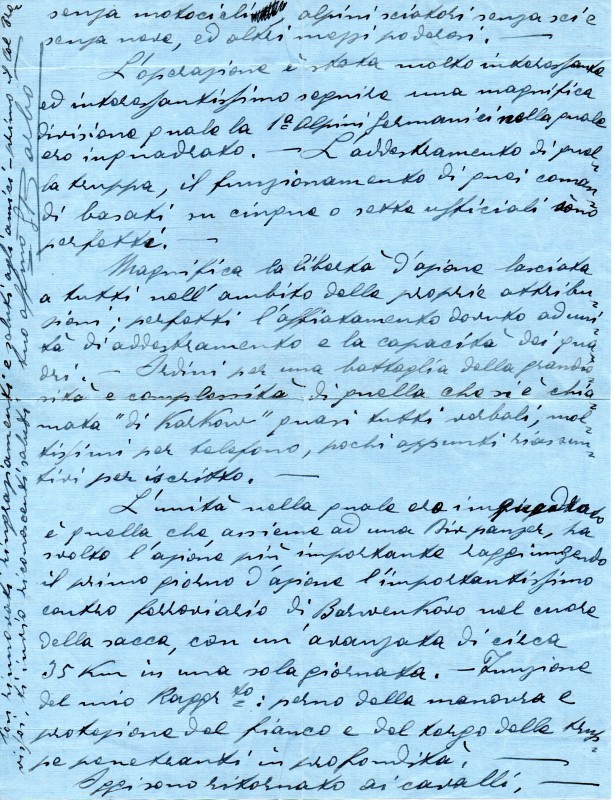 senza motociclisti, alpini sciatori senza sci e
senza neve, ed altri mezzi poderosi. —
L'operazione è stata molto interessante
ed interessantissimo seguire una magnifica
divisione quale la 1ª Alpini germanici nella quale
ero inquadrato. — L'addestramento di quel-
la truppa, il funzionamento di quei coman-
di basati su cinque o sette ufficiali sono
perfetti. —
Magnifica la libertà d'azione lasciata
a tutti nell'ambito delle proprie attribu-
zioni; perfetti l'affiatamento dovuto ad uni-
tà di addestramento e la capacità dei qua-
dri. — Ordini per una battaglia della grandio-
sità e complessità di quella che si è chia-
mata "di Karkow" quasi tutti verbali, mol-
tissimi per telefono, pochi appunti riassun-
tivi per iscritto. —
L'unità nella quale ero inquadrato
è quella che, assieme ad una Div panzer, ha
svolto l'azione più importante raggiungendo
il primo giorno d'azione l'importantissimo
centro ferroviario di Barwenkowo nel cuore
della sacca, con un'avanzata di circa
35 Km in una sola giornata. — Funzione
del mio Raggr.to: perno della manovra e
protezione del fianco e del tergo delle trup-
pe penetranti in profondità. —
Oggi sono ritornato ai cavalli, —
Con rinnovati ringraziamenti e saluti agli amici — primo il Col
ti invio riconoscenti saluti tuo affmo
Barbò